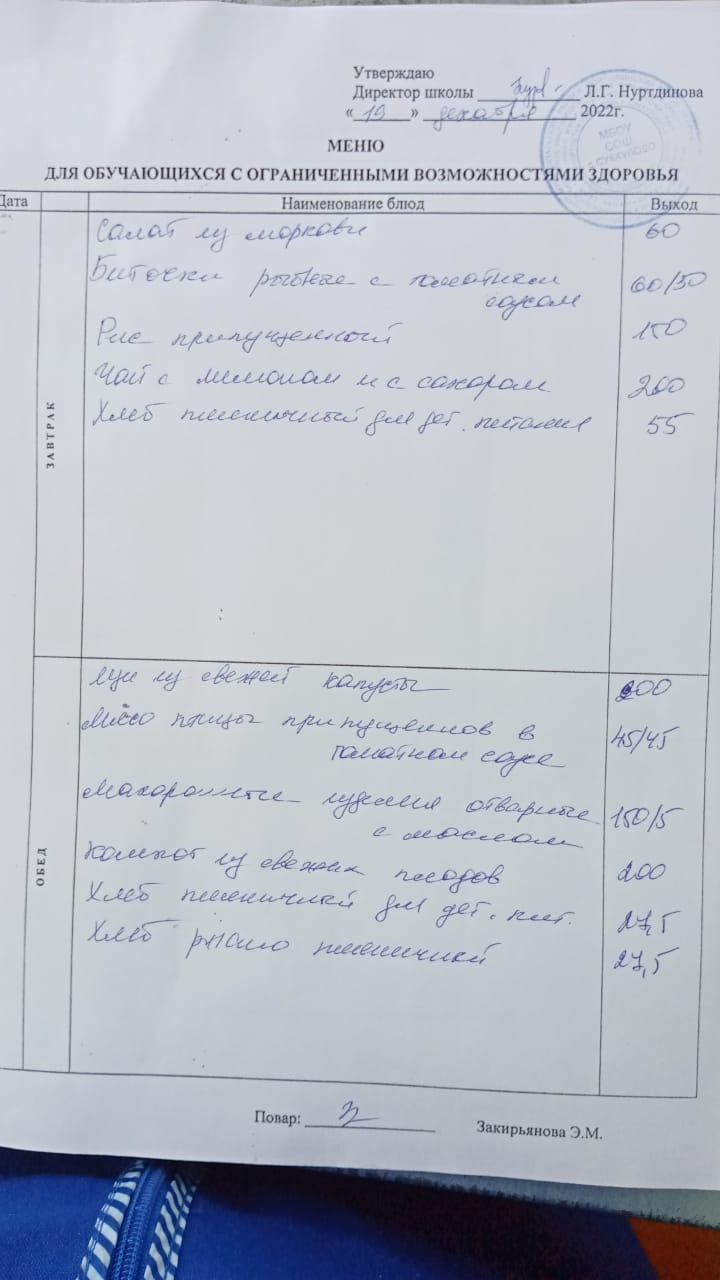 Утверждаю
Директор школы Л.Г. Нуртдинова
« 19 » декабря 2022г.
МБОУ
СОШ
МЕНЮ
ДЛЯ ОБУЧАЮЩИХСЯ С ОГРАНИЧЕННЫМИ ВОЗМОЖНОСТЯМИ ЗДОРОВЬЯ
Дата Наименование блюд Выход
ЗАВТРАК
Салат из моркови 60
Биточки рыбные с томатным
соусом 60/50
Рис припущенный 150
Чай с лимоном и с сахаром 200
Хлеб пшеничный для дет. питания 55
ОБЕД
Щи из свежей капусты 200
Мясо птицы припущенное в 45/45
томатном соусе
Макаронные изделия отварные 150/5
с маслом
Компот из свежих плодов 200
Хлеб пшеничный для дет. пит. 27,5
Хлеб ржано пшеничный 27,5
Повар: Закирьянова Э.М.